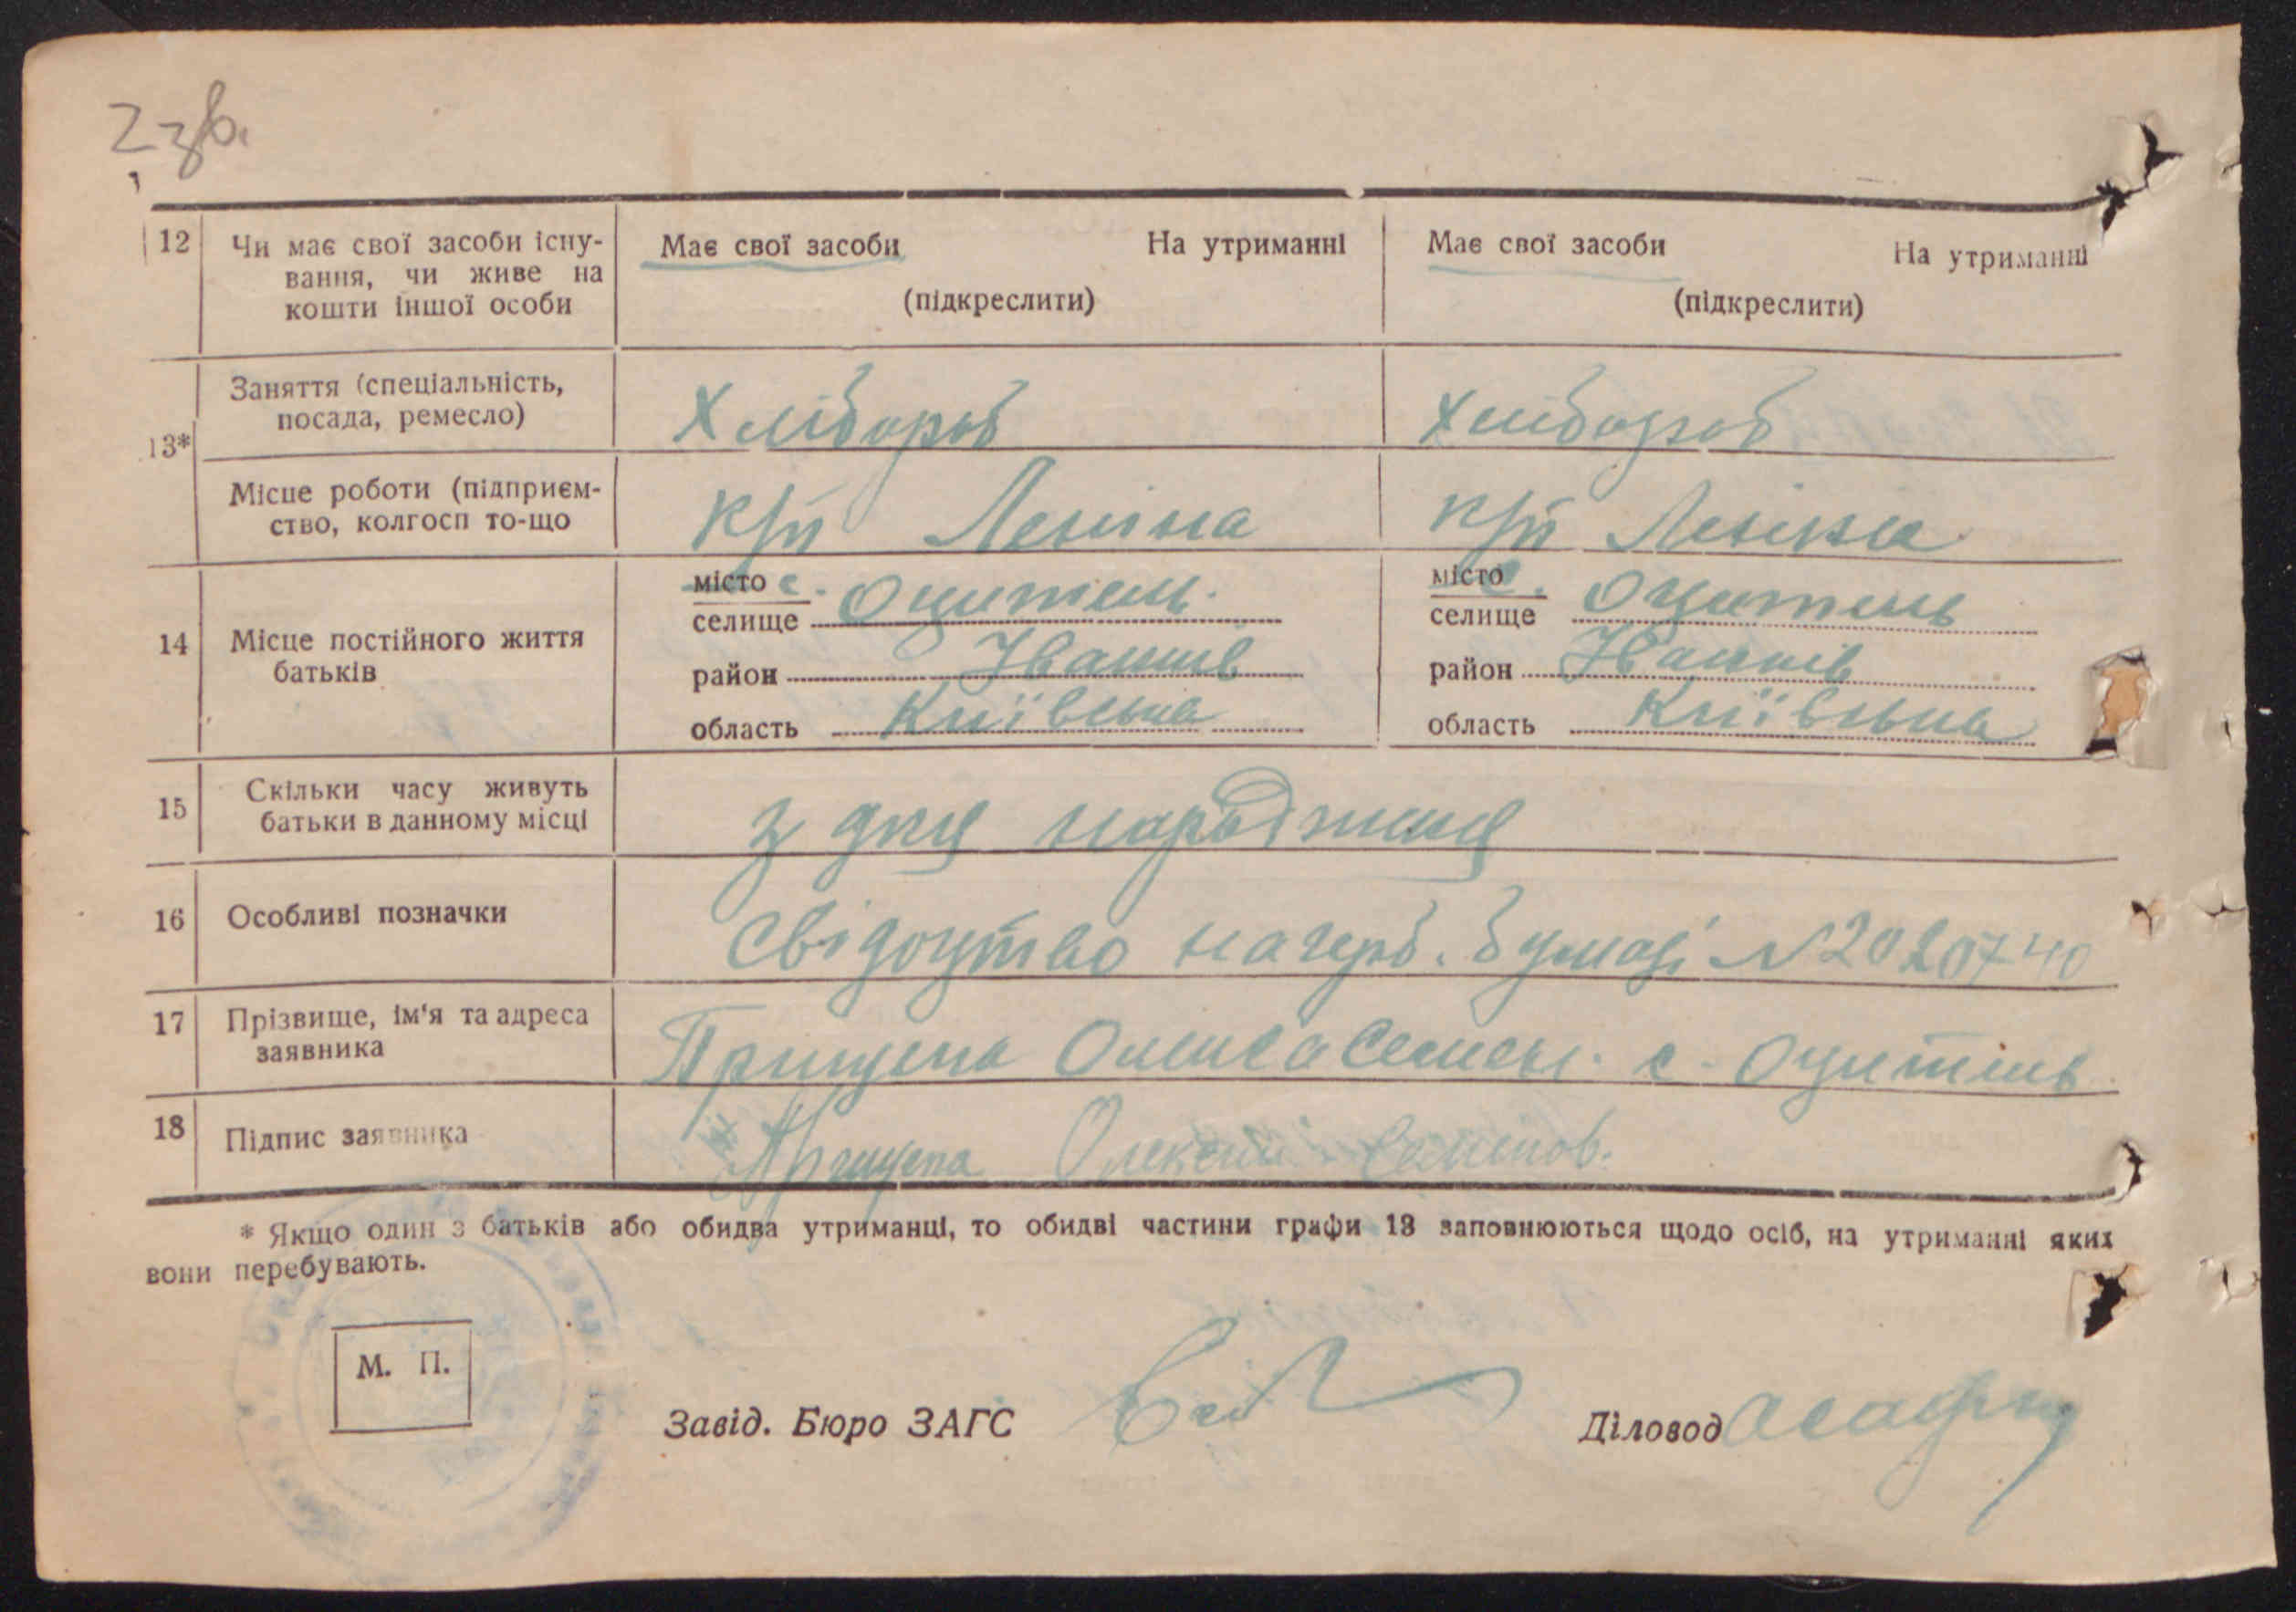 2 зв.
12 Чи має свої засоби існу-
вання, чи живе на
кошти іншої особи
Має свої засоби На утриманні
(підкреслити)
Має свої засоби На утриманні
(підкреслити)
13*
Заняття (спеціальність,
посада, ремесло)
Хлібороб
Хлібороб
Місце роботи (підприєм-
ство, колгосп то-що
к/г Леніна
к/г Леніна
14 Місце постійного життя
батьків
місто с.
селище Оцитель
район Іванків
область Київська
місто с.
селище Оцитель
район Іванків
область Київська
15 Скільки часу живуть
батьки в данному місці
з дня народження
16 Особливі позначки
Свідоцтво на герб. бумазі №
17 Прізвище, ім'я та адреса
заявника
Прищепа Семен. с. Оцитель
18 Підпис заявника
Прищепа Олексій Семенов.
* Якщо один з батьків або обидва утриманці, то обидві частини графи 13 заповнюються щодо осіб, на утриманні яких
вони перебувають.
М. П.
Завід. Бюро ЗАГС
Діловод